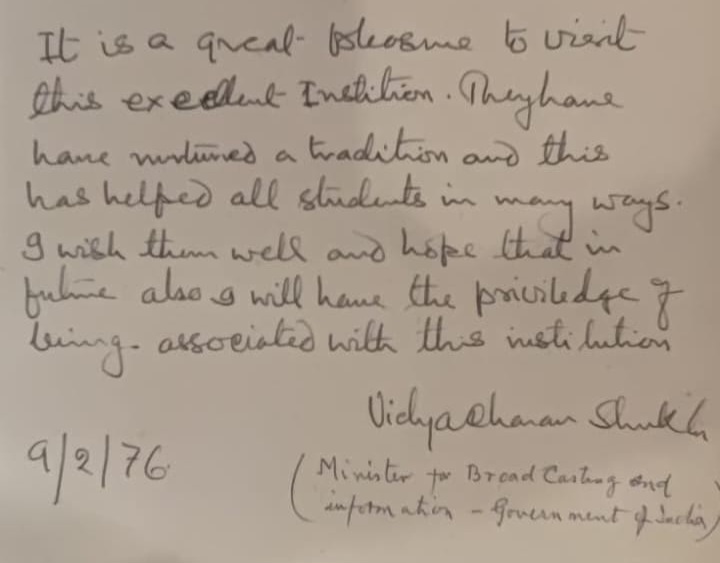 It is a great pleasure to visit
this excellent Instition. They have
have nurtured a tradition and this
has helped all students in many ways.
I wish them well and hope that in
future also I will have the priviledge of
being. associated with this institution
Vidyacharan Shukla
9/2/76
(Minister for Broad Casting and
information - Government of India)